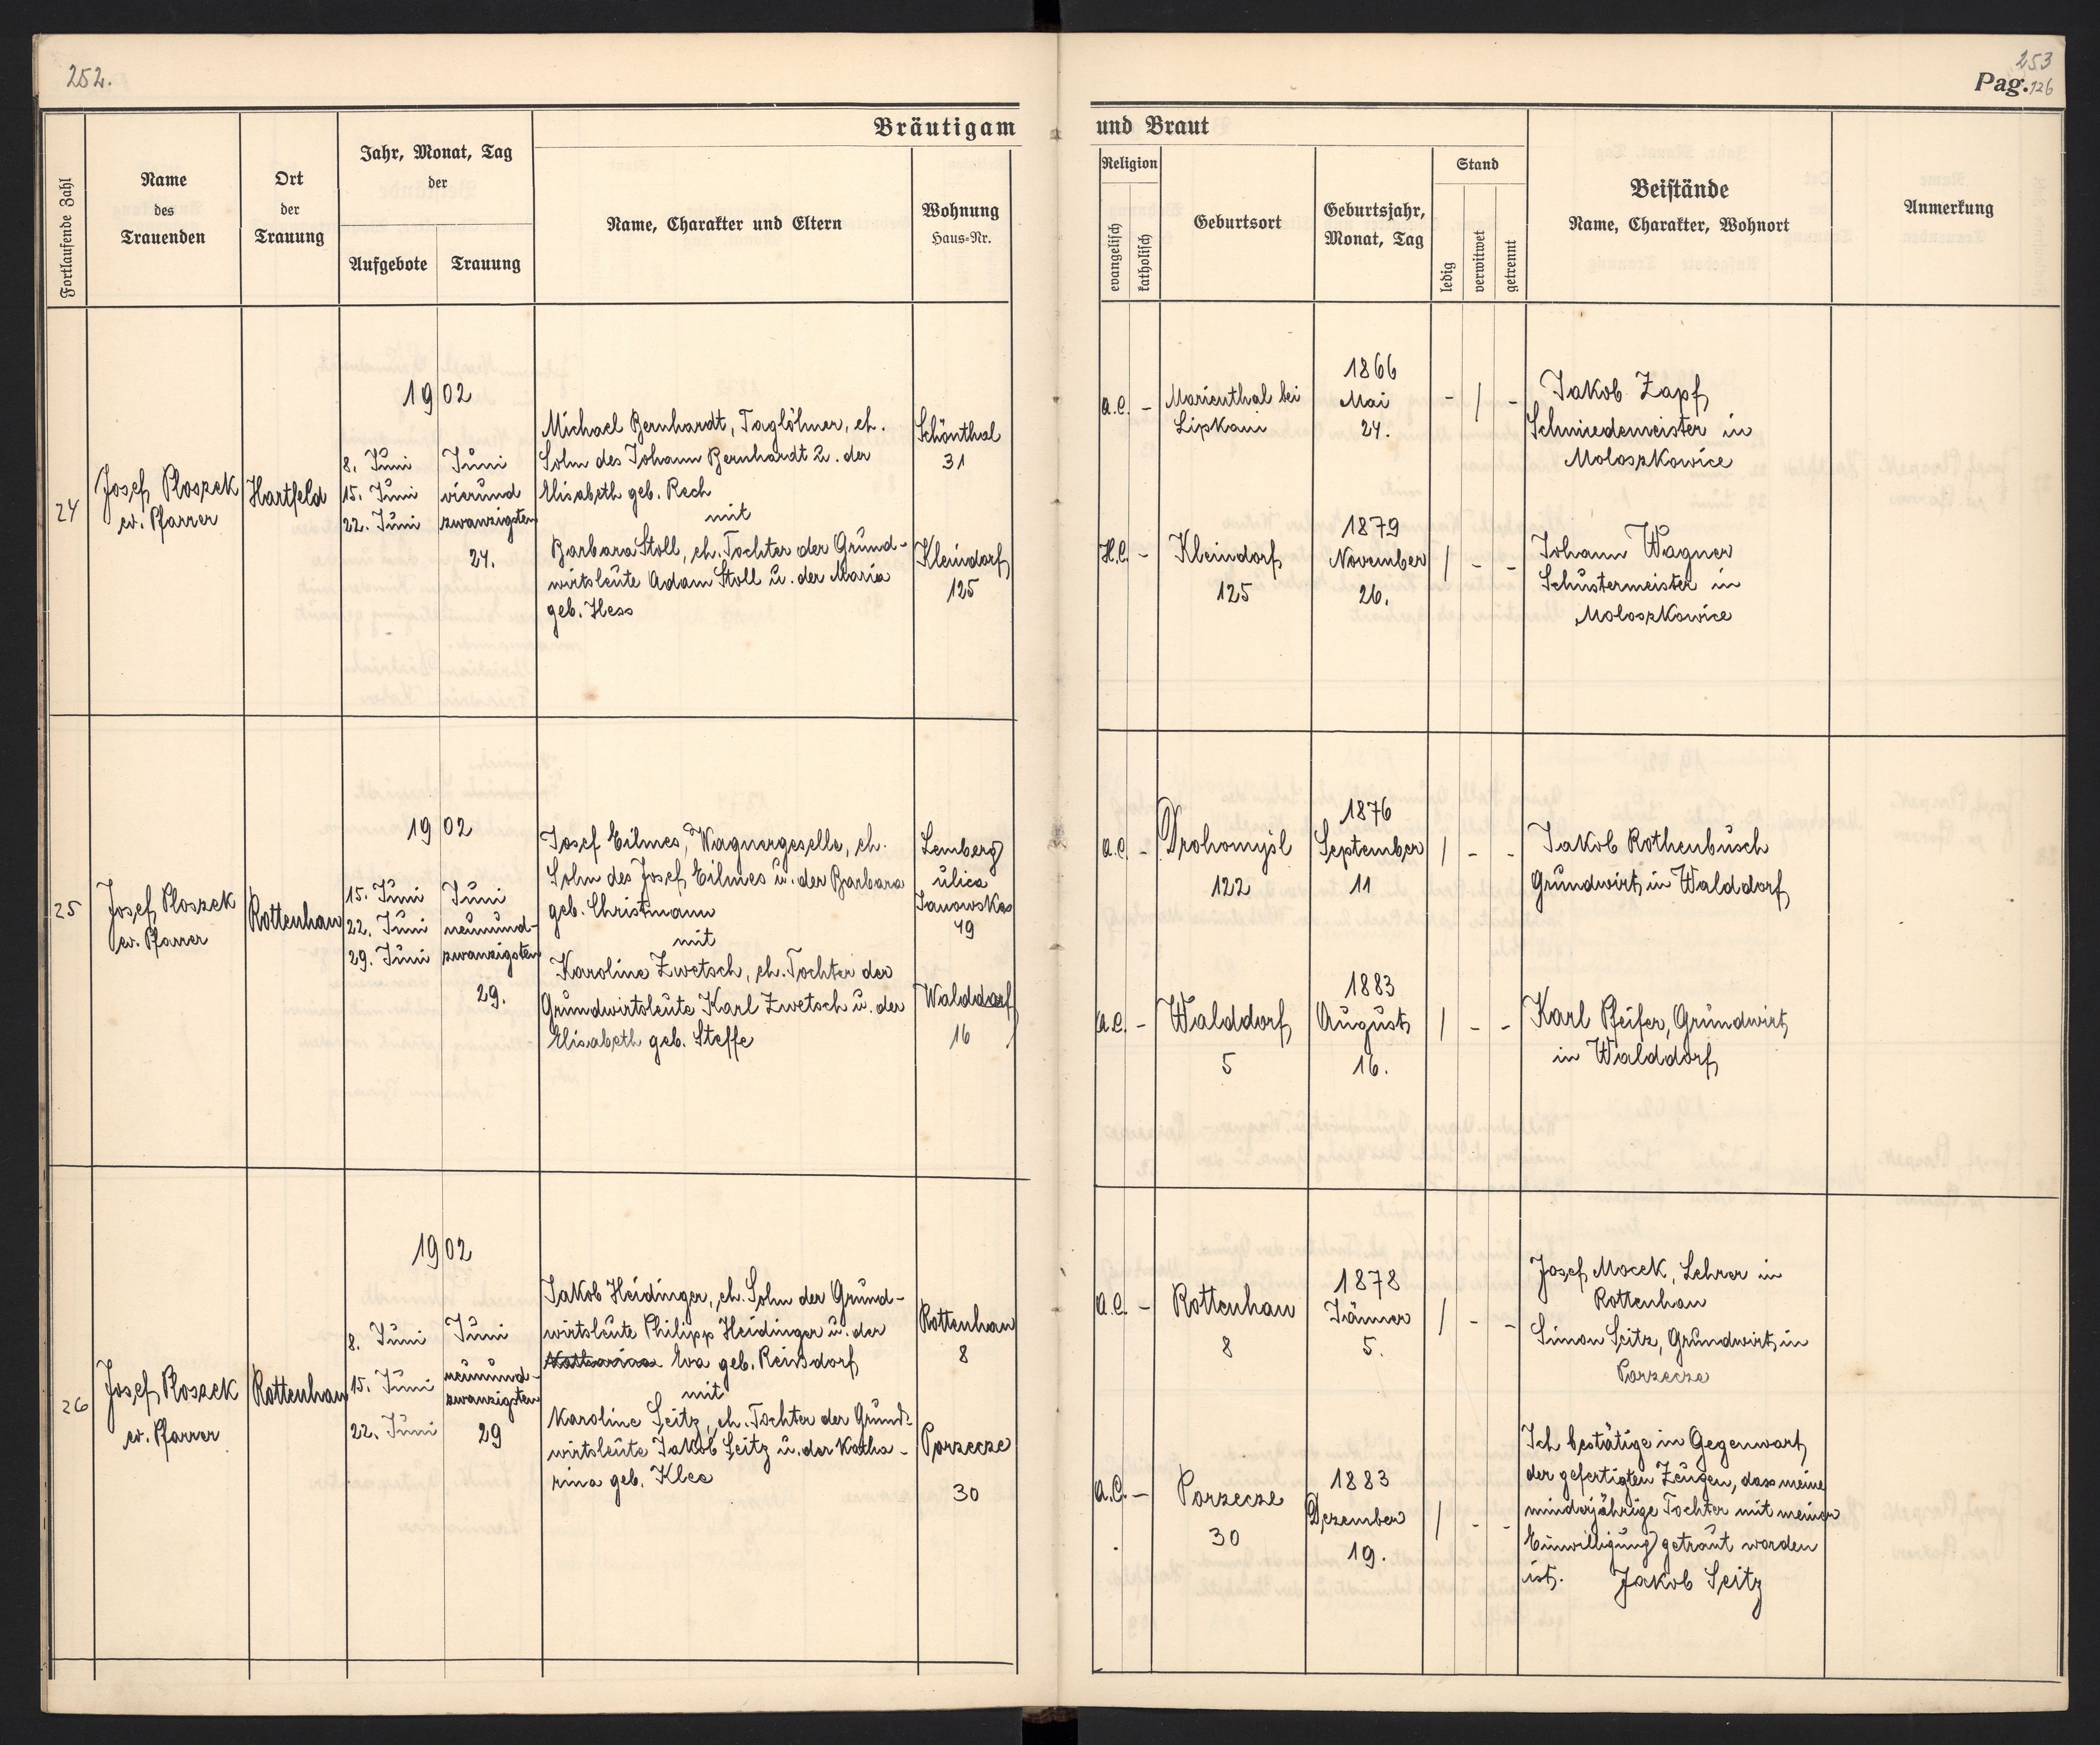 252.
253
Pag. 126
Bräutigam und Braut
Fortlaufende Zahl
Name
des
Trauenden
Ort
der
Trauung
Jahr, Monat, Tag
der
Aufgebote
Trauung
Name, Charakter und Eltern
Wohnung
Haus=Nr.
Religion
evangelisch
katholisch
Geburtsort
Geburtsjahr,
Monat, Tag
Stand
ledig
verwitwet
getrennt
Beistände
Name, Charakter, Wohnort
Anmerkung
24
Josef Ploszek
ev. Pfarrer
Hartfeld
1902
8. Juni
15. Juni
22. Juni
Juni
vierund
zwanzigsten
24.
Michael Bernhardt, Taglöhner, eh.
Sohn des Johann Bernhardt u. der
Elisabeth geb. Rech
mit
Barbara Stoll, eh. Tochter der Grund-
wirtsleute Adam Stoll u. der Maria
geb. Hess
Schönthal
31
Kleindorf
125
A.C. -
Marienthal bei
Lipkani
1866
Mai
24.
- / -
Jakob Zapf
Schmiedemeister in
Moloszkowice
H.C. -
Kleindorf
125
1879
November
26.
/ - -
Johann Wagner
Schustermeister in
Moloszkowice
25
Josef Ploszek
ev. Pfarrer
Rottenhan
1902
15. Juni
22. Juni
29. Juni
Juni
neunund-
zwanzigsten
29.
Josef Eilmes, Wagnergeselle, eh.
Sohn des Josef Eilmes u. der Barbara
geb. Christmann
mit
Karoline Zwetsch, eh. Tochter der
Grundwirtsleute Karl Zwetsch u. der
Elisabeth geb. Steffe
Lemberg
ulica
Janowska
49
Walddorf
16
A.C. -
Drohomysl
122
1876
September
11
/ - -
Jakob Rothenbusch
Grundwirt in Walddorf
A.C. -
Walddorf
5
1883
August
16.
/ - -
Karl Pfeifer, Grundwirt
in Walddorf
26
Josef Ploszek
ev. Pfarrer
Rottenhan
1902
8. Juni
15. Juni
22. Juni
Juni
neunund-
zwanzigsten
29
Jakob Heidinger, eh. Sohn der Grund-
wirtsleute Philipp Heidinger u. der
Katharina Eva geb. Reinsdorf
mit
Karoline Seitz, eh. Tochter der Grund-
wirtsleute Jakob Seitz u. der Katha-
rina geb. Klee
Rottenhan
8
Porzecze
30
A.C. -
Rottenhan
8
1878
Jänner
5.
/ - -
Josef Mocek, Lehrer in
Rottenhan
Simon Seitz, Grundwirt in
Porzecze
A.C. -
Porzecze
30
1883
Dezember
19.
/ - -
Ich bestätige in Gegenwart
der gefertigten Zeugen, dass meine
minderjährige Tochter mit meiner
Einwilligung getraut worden
ist. Jakob Seitz